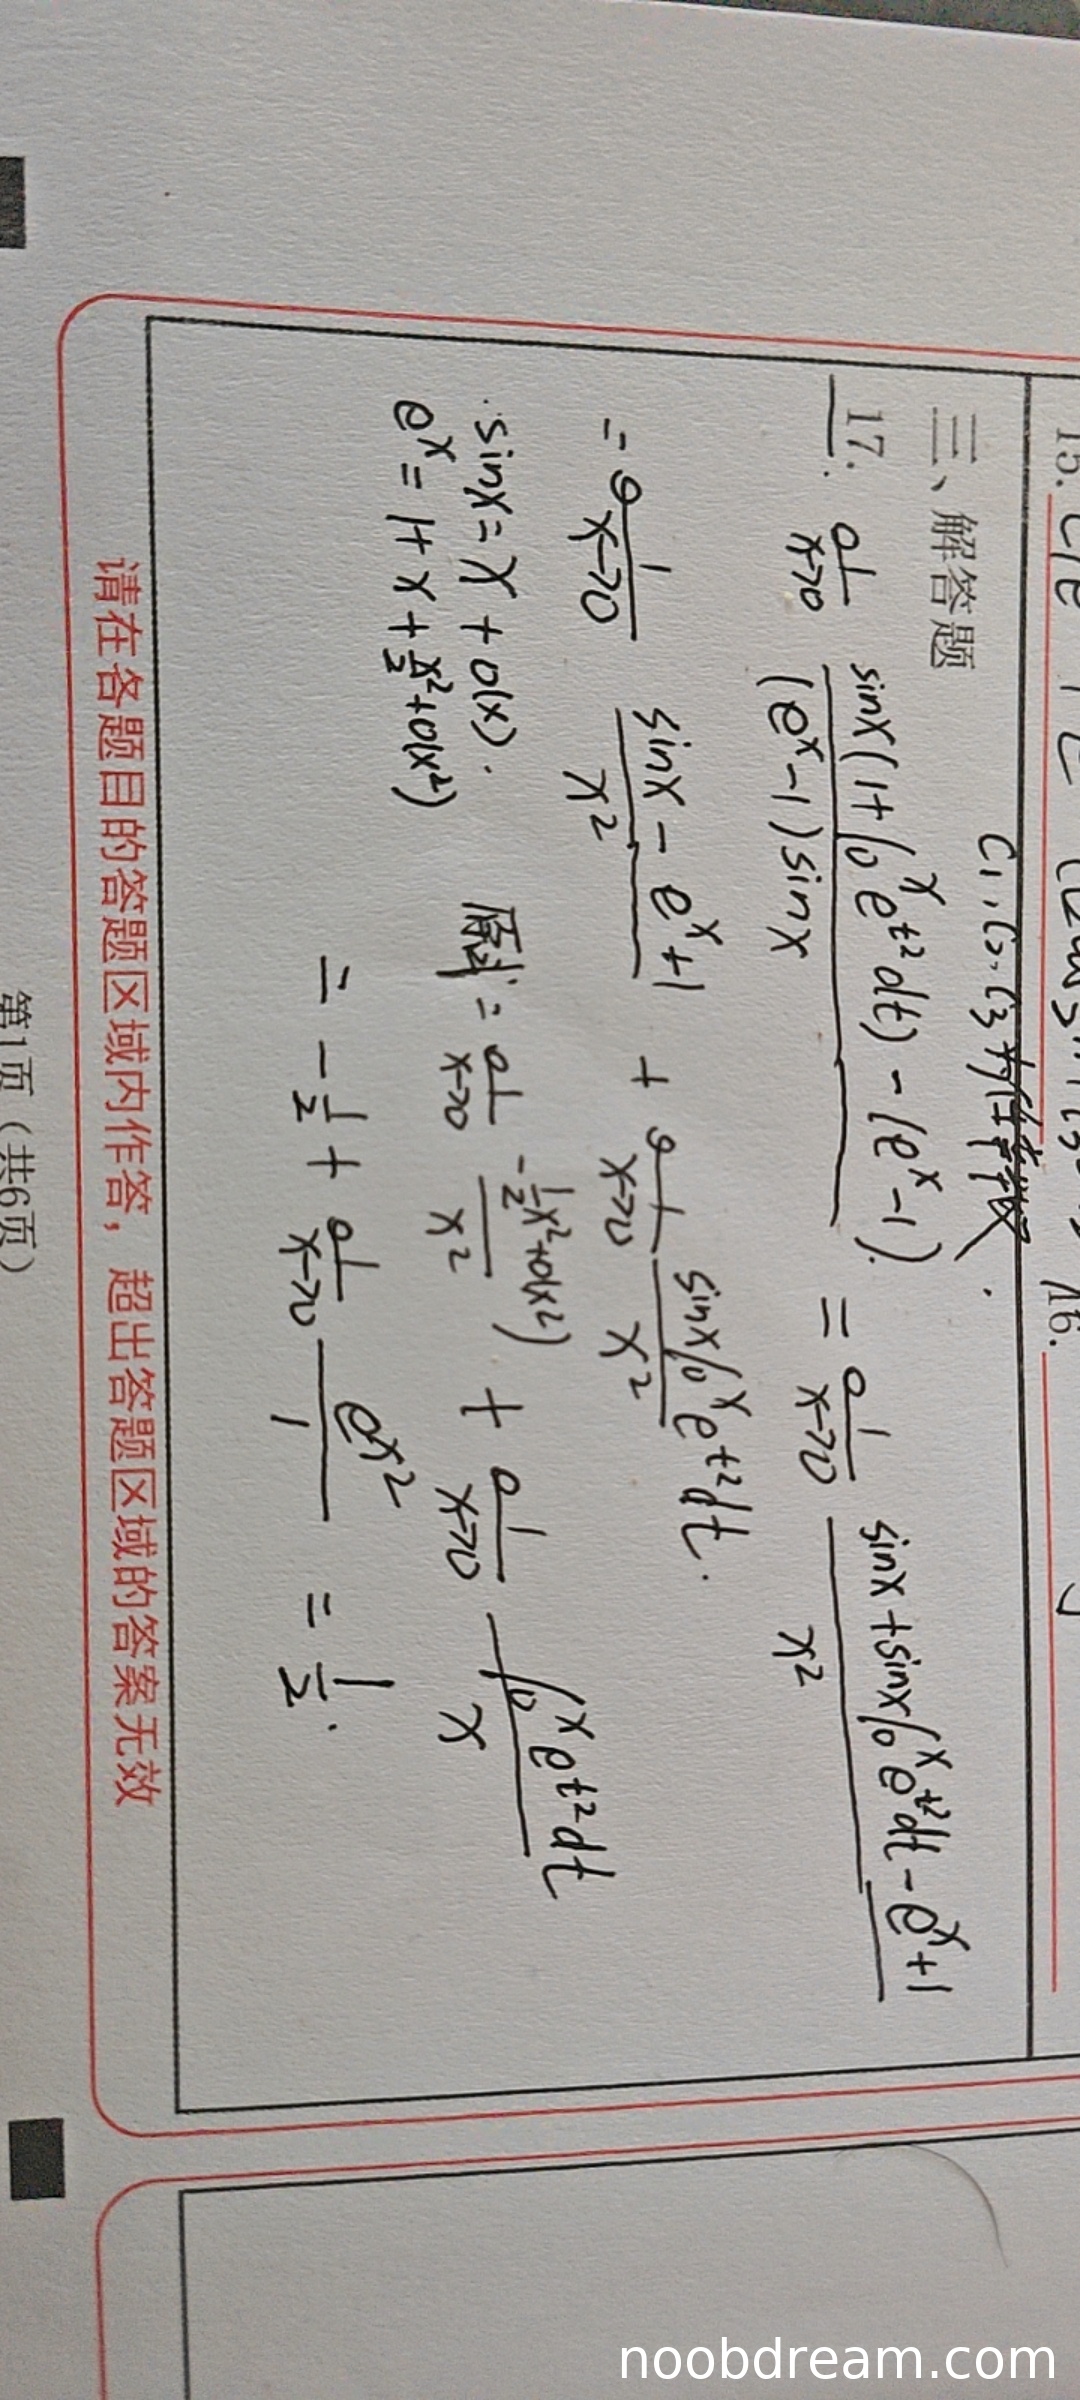 15.
16.
C₁, C₂, C₃为任意常数.
三、解答题
17. lim x→0 (sinx(1+∫₀ˣ e^{t²}dt) - (eˣ-1)) / ((eˣ-1)sinx) = lim x→0 (sinx + sinx∫₀ˣ e^{t²}dt - eˣ+1) / x²
= lim x→0 (sinx - eˣ+1) / x² + lim x→0 (sinx∫₀ˣ e^{t²}dt) / x².
sinx = x + o(x). 原式 = lim x→0 (-½x²+o(x²)) / x² + lim x→0 (∫₀ˣ e^{t²}dt) / x
eˣ = 1+x+x²/2+o(x²)
= -½ + lim x→0 e^{x²} / 1 = ½.
请在各题目的答题区域内作答，超出答题区域的答案无效
第1页（共6页）
noobdream.com